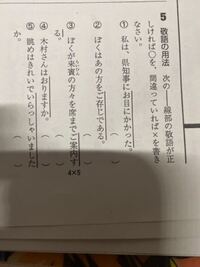 5 敬語の用法 次の――線部の敬語が正
しければ○を、間違っていれば×を書き
なさい。
① 私は、県知事にお目にかかった。
( )
② ぼくはあの方をご存じである。
( )
③ ぼくが来賓の方々を席までご案内す
る。 ( ) 4×5
④ 木村さんはおりますか。 ( )
⑤ 眺めはきれいでいらっしゃいました
か。 ( )